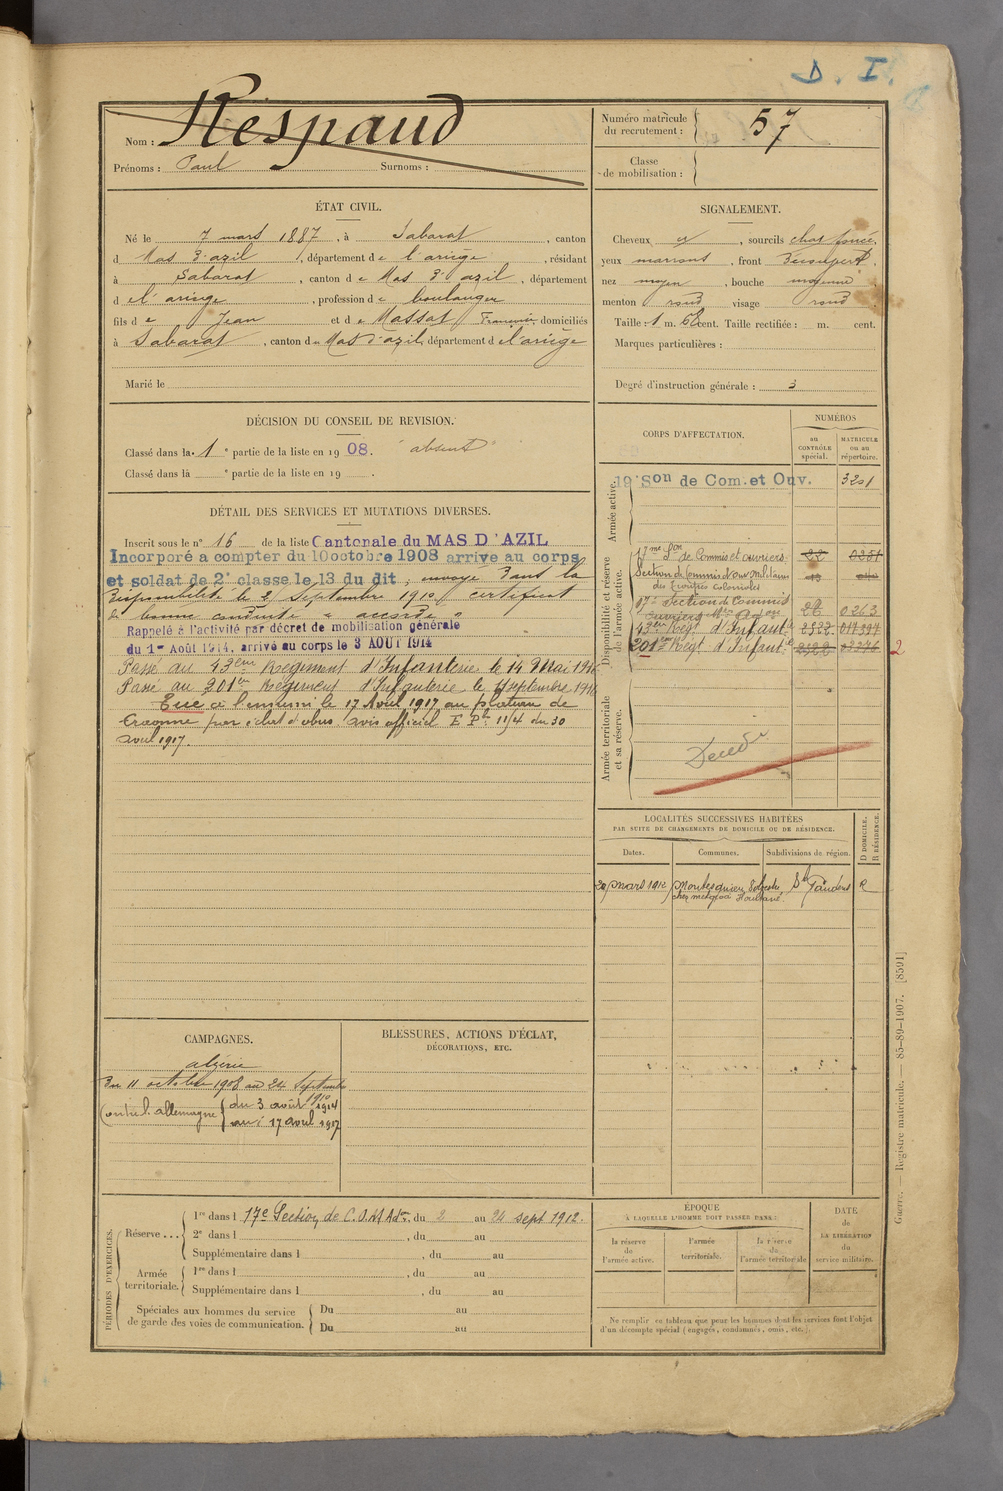 D. I.
Nom : Respaud
Prénoms : Paul Surnoms :
Numéro matricule
du recrutement : 57
Classe
de mobilisation :
ÉTAT CIVIL.
Né le 7 mars 1887, à Sabarat, canton
d Mas d'azil, département de l'ariège, résidant
à Sabarat, canton de Mas d'azil, département
de l'ariège, profession de boulanger
fils de Jean et de Massat Françoise domiciliés
à Sabarat, canton de Mas d'azil, département de l'ariège
Marié le
SIGNALEMENT.
Cheveux, sourcils chat foncé,
yeux marrons, front découvert,
nez moyen, bouche moyenne
menton rond visage rond
Taille : 1 m. 62 cent. Taille rectifiée : m. cent.
Marques particulières :
Degré d'instruction générale : 3
DÉCISION DU CONSEIL DE REVISION.
Classé dans la 1e partie de la liste en 1908. "absent"
Classé dans la e partie de la liste en 19 .
DÉTAIL DES SERVICES ET MUTATIONS DIVERSES.
Inscrit sous le n° 16 de la liste Cantonale du MAS D'AZIL
Incorporé a compter du 10 octobre 1908 arrivé au corps
et soldat de 2e classe le 13 du dit, envoyé dans la
disponibilité le 2 septembre 1910 certificat
de bonne conduite "accordé"
Rappelé à l'activité par décret de mobilisation générale
du 1er Août 1914, arrivé au corps le 3 AOUT 1914
Passé au 43eme Regiment d'Infanterie le 14 Mai 1916
Passé au 201er Regiment d'Infanterie le septembre 1916
Tué à l'ennemi le 17 Avril 1917 au plateau de
Craonne par éclat d'obus avis officiel F. Pl. 11/4 du 30
avril 1917.
CORPS D'AFFECTATION.
NUMÉROS
au
CONTRÔLE
spécial.
MATRICULE
ou au
répertoire.
Armée active.
19e Son de Com. et Ouv. 3201
Disponibilité et réserve
de l'armée active.
17me Son de Commis et ouvriers 22 0351
Section de Commis et ouv. militaires
des troupes coloniales
17e Section de Commis
ouvriers 26 0263
43eme Regt d'Infantie
201eme Regt d'Infantie
2
Armée territoriale
et sa réserve.
Décédé
LOCALITÉS SUCCESSIVES HABITÉES
PAR SUITE DE CHANGEMENTS DE DOMICILE OU DE RÉSIDENCE.
Dates. Communes. Subdivisions de région. D DOMICILE. R RÉSIDENCE.
20 mars 1912 Montesquieu Volvestre St Gaudens R
CAMPAGNES.
algérie
Du 11 octobre 1908 au 24 septembre
1910
Contre l'allemagne du 3 août 1914
au 17 avril 1917
BLESSURES, ACTIONS D'ÉCLAT,
DÉCORATIONS, ETC.
PÉRIODES D'EXERCICES.
Réserve ...
1re dans l 17e Section de C.O.M Adon, du 2 au 24 sept 1912.
2e dans l , du au
Supplémentaire dans l , du au
Armée
territoriale.
1re dans l , du au
Supplémentaire dans l , du au
Spéciales aux hommes du service
de garde des voies de communication.
Du au
Du au
ÉPOQUE
À LAQUELLE L'HOMME DOIT PASSER DANS :
la réserve
de
l'armée active.
l'armée
territoriale.
la réserve
de
l'armée territoriale
DATE
de
LA LIBÉRATION
du
service militaire.
Ne remplir ce tableau que pour les hommes dont les services font l'objet
d'un décompte spécial (engagés, condamnés, omis, etc.)
Guerre. — Registre matricule. 85-89-1907. [8591]